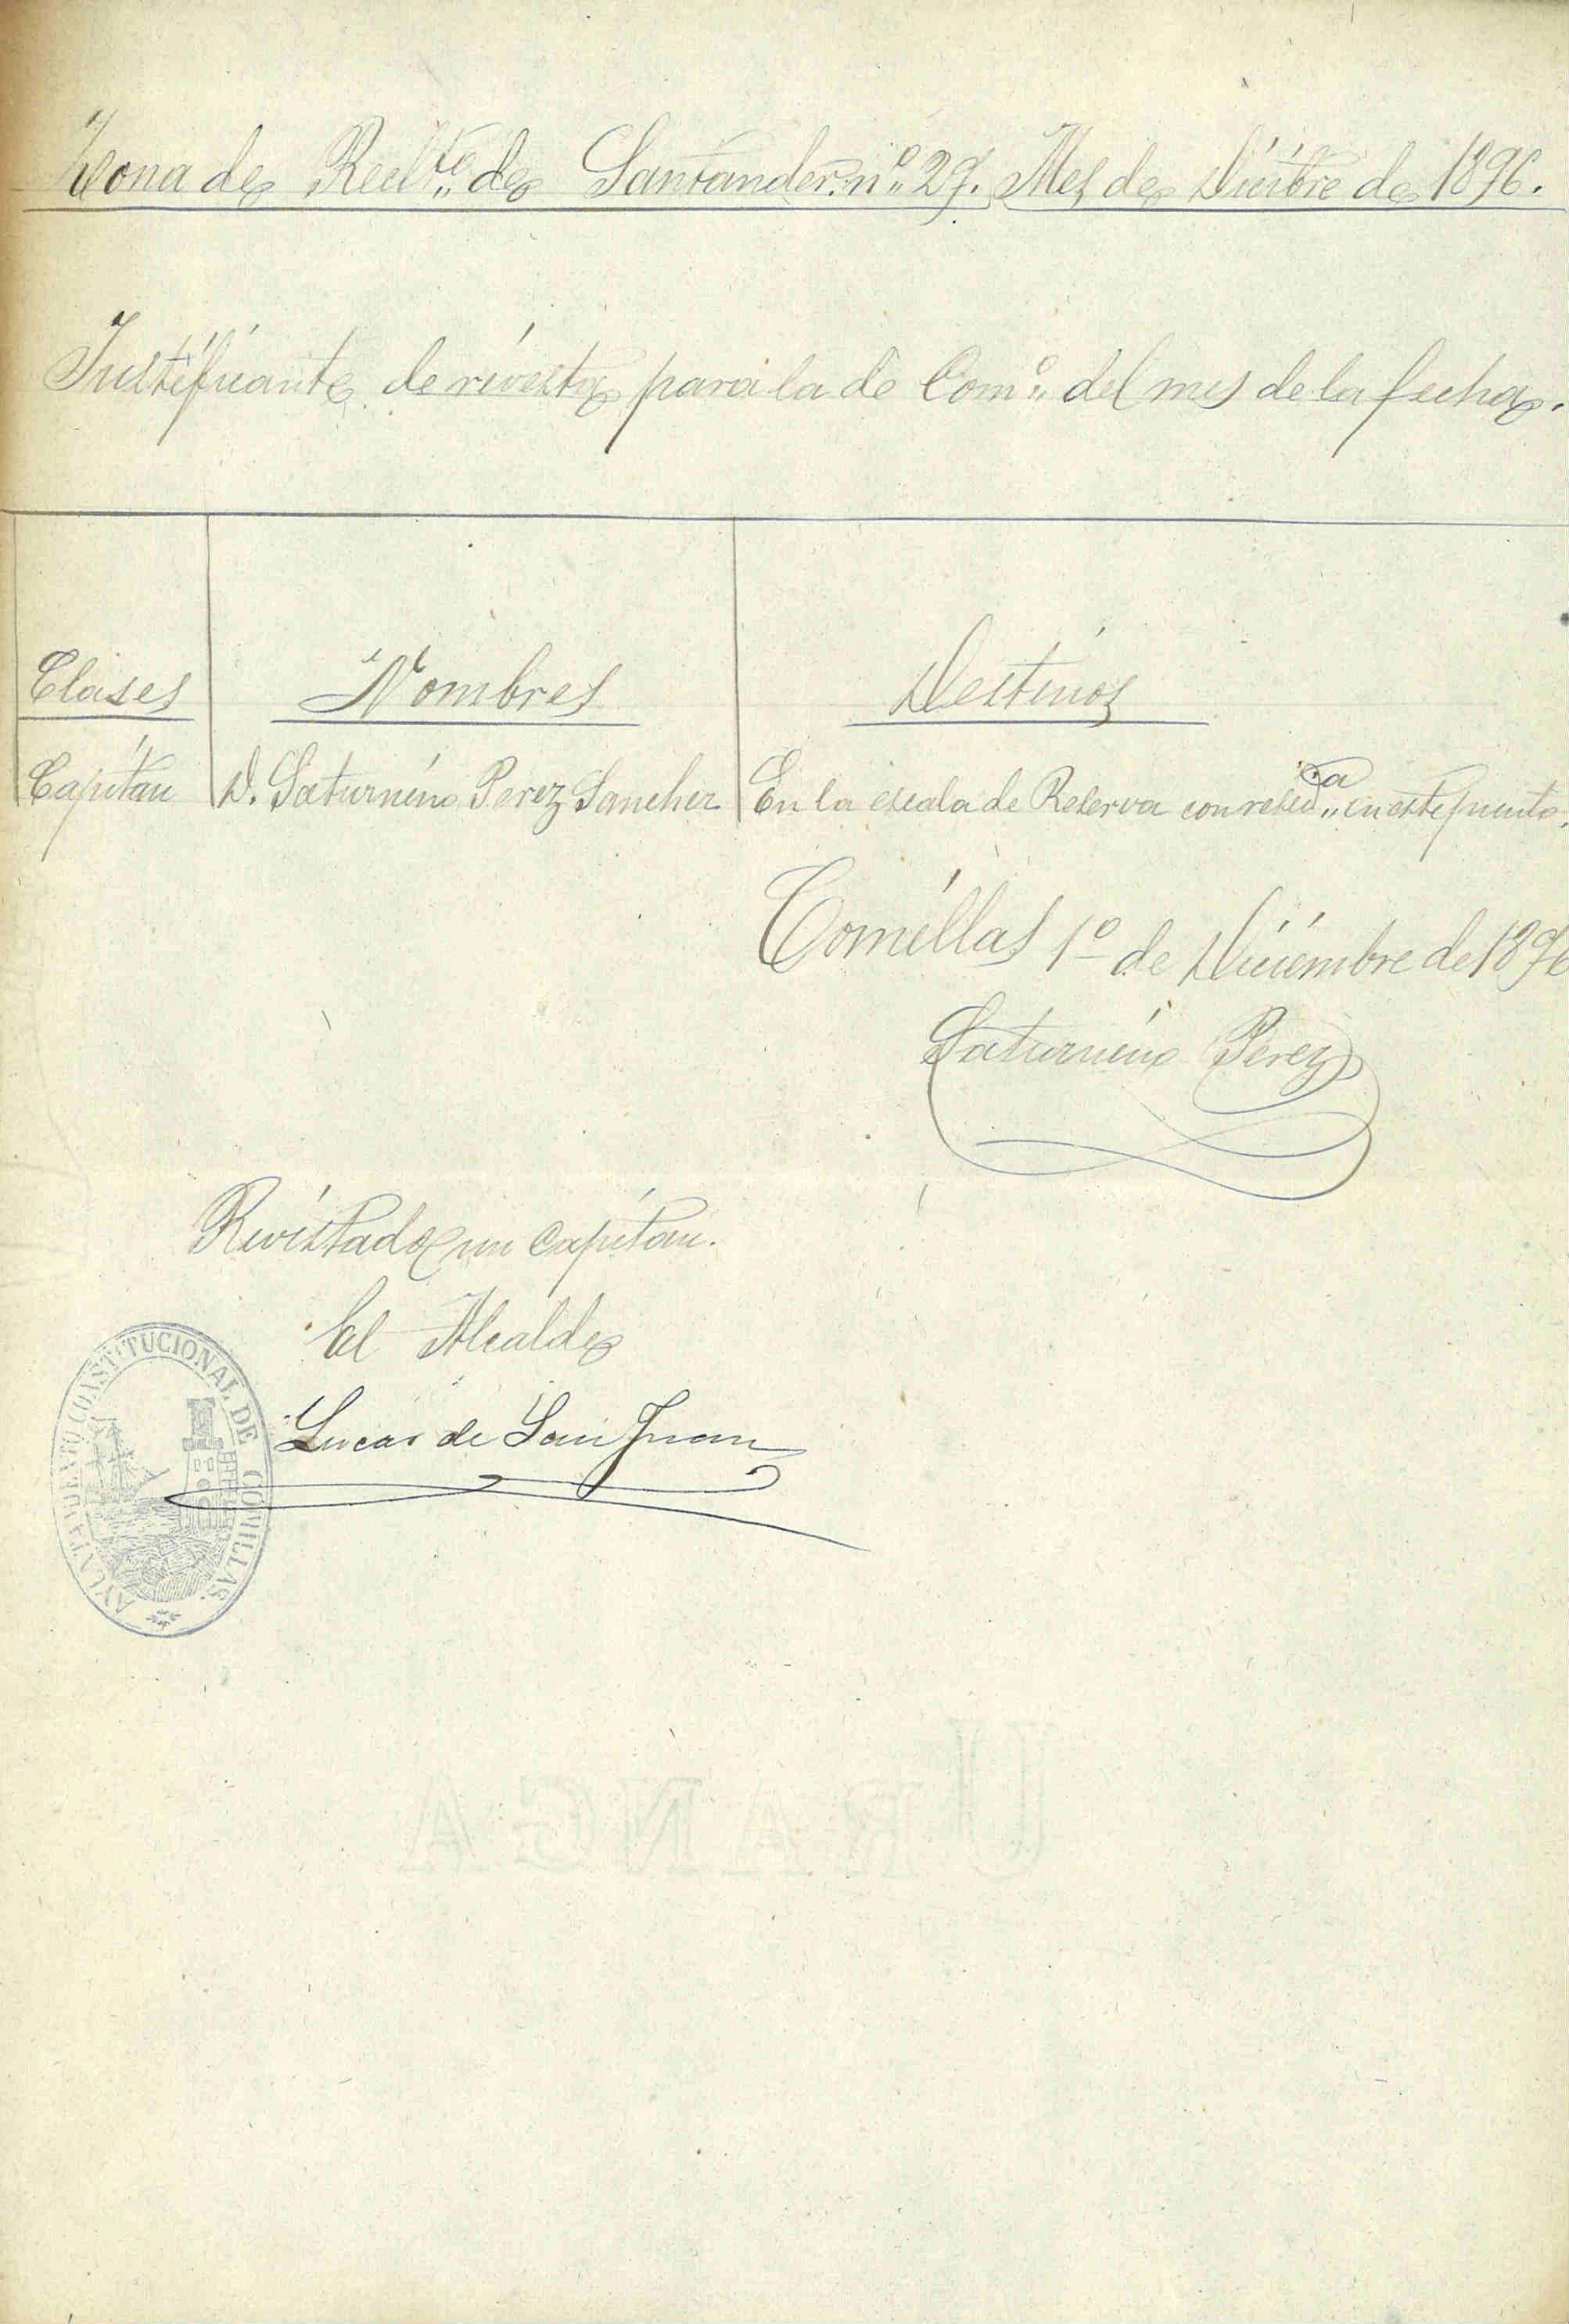 Zona de Reclt.to de Santander nº 29. Mes de Dicibre de 1896.
Justificante de revista para la de Com.º del mes de la fecha.
Clases Nombres Destinos
Capitan D. Saturnino Perez Sanchez En la escala de Reserva con resid.a en este punto.
Comillas 1º de Diciembre de 1896
Saturnino Perez
Revistado un Capitan.
El Alcalde
Lucas de San Juan
AYUNTAMIENTO CONSTITUCIONAL DE COMILLAS.
URANGA